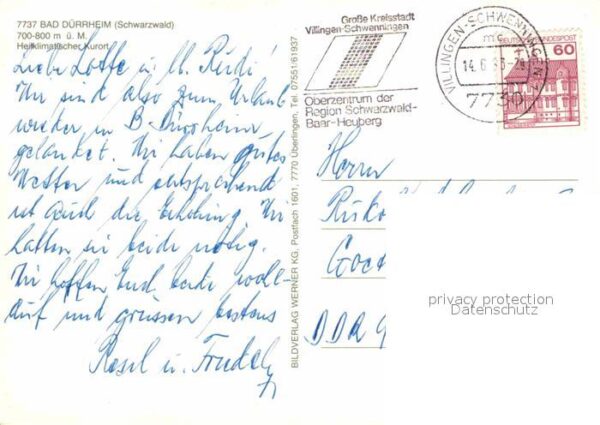 7737 BAD DÜRRHEIM (Schwarzwald)
700-800 m ü. M.
Heilklimatischer Kurort
Liebe Lotte u. lb. Rudi!
Wir sind also zum Urlaub
wieder in B-Dürrheim
gelandet. Wir haben gutes
Wetter und entsprechend
ist auch die Erholung. Wir
hatten sie beide nötig.
Wir hoffen Euch beide wohl-
auf und grüssen bestens
Rosel u. Friedel
BILDVERLAG WERNER KG, Postfach 1601, 7770 Überlingen, Tel. 07551/61937
Große Kreisstadt
Villingen-Schwenningen
Oberzentrum der
Region Schwarzwald-
Baar-Heuberg
VILLINGEN-SCHWENNINGEN 1
mc
14.6.
7730
60
Herrn
DDR
privacy protection
Datenschutz